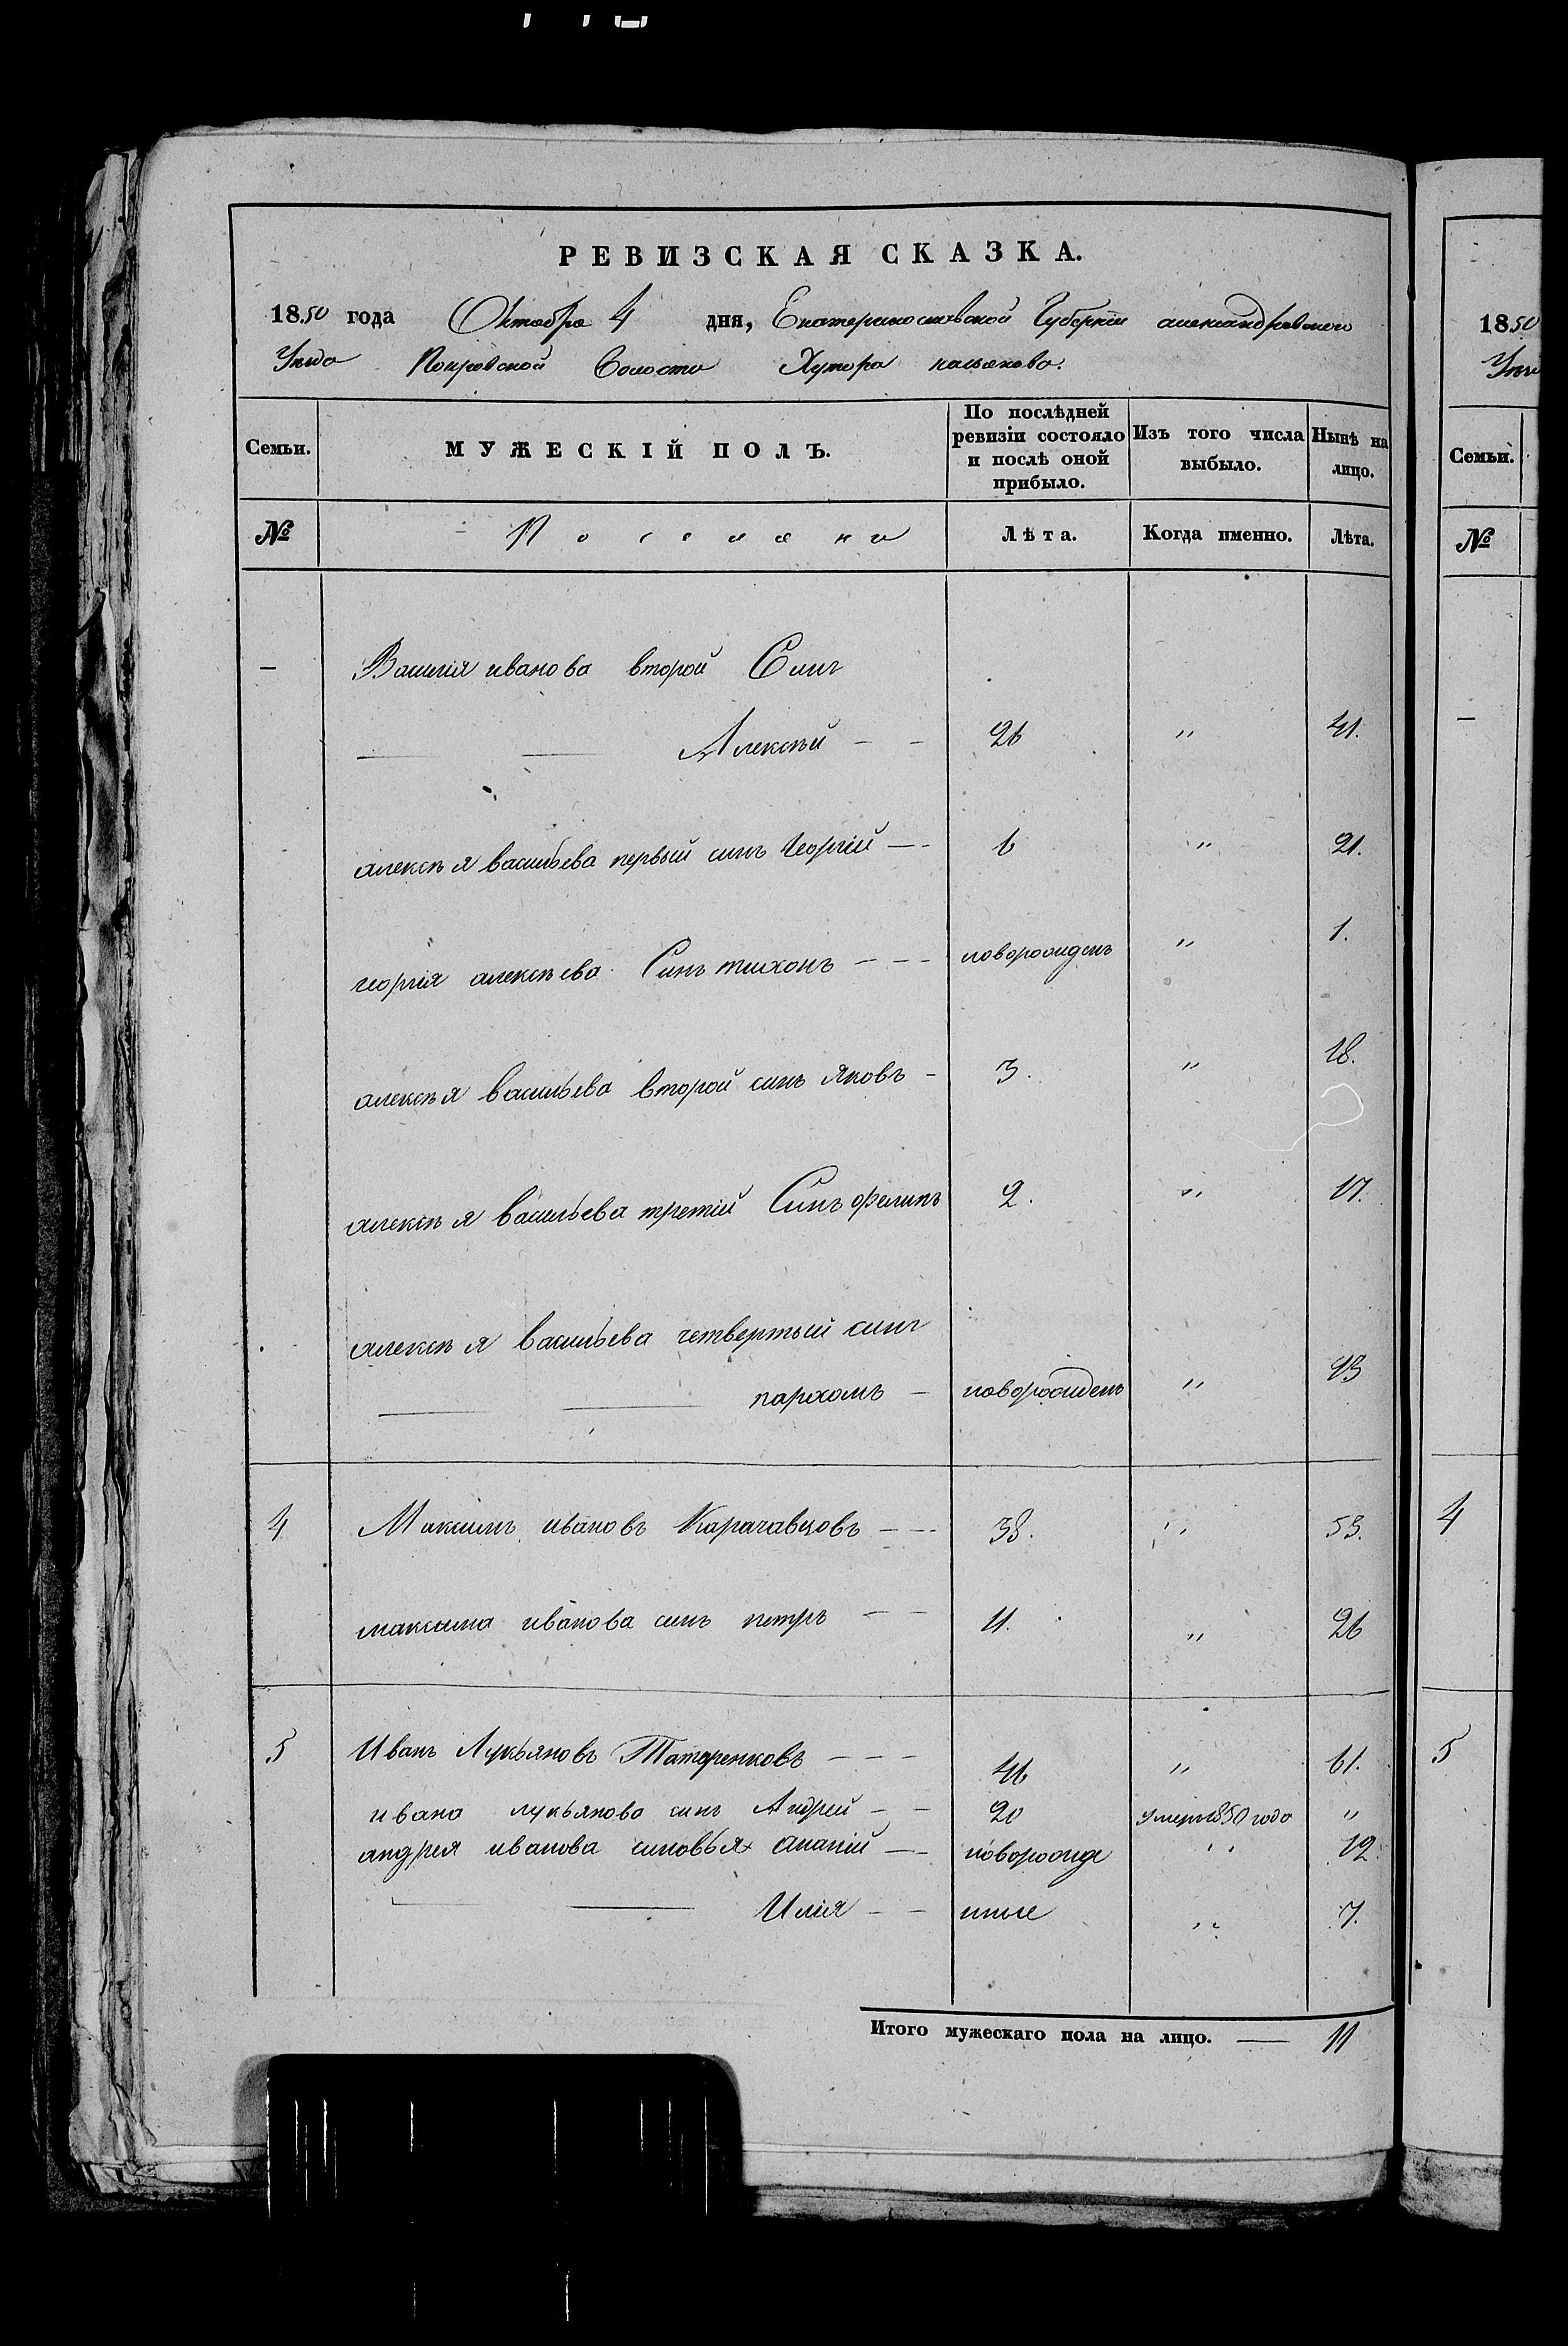 РЕВИЗСКАЯ СКАЗКА.
1850 года Октября 4 дня, Екатеринославской Губернiи александровского
Уезда Покровской Волости Хутора
Семьи. МУЖЕСКIЙ ПОЛЪ. По послѣдней ревизiи состояло и послѣ оной прибыло. Изъ того числа выбыло. Нынѣ на лицо.
№ Поселяни Лѣта. Когда именно. Лѣта.
— Василiя иванова второй Синъ
Алексѣй — — 26 " 41.
алексѣя васильева первый синъ Георгiй — 6 " 21.
георгiя алексѣева Синъ тихонъ — — — новорожденъ " 1.
алексѣя васильева второй синъ яковъ — 3. " 18.
алексѣя васильева третiй Синъ филипъ 2. " 17.
алексѣя васильева четвертый синъ
пархомъ — новорожденъ " 13
4 Максимъ ивановъ Карачавцовъ — — 38. " 53.
максима иванова синъ петръ — — 11. " 26
5 Иванъ Лукьяновъ Татаренковъ — — — 46 " 61.
ивана лукьянова синъ Андрей — — 20 Умеръ 1850 года "
андрея иванова синовья Ананiй — новорожде " 12.
Илiя — — нные " 7.
Итого мужескаго пола на лицо. — 11
1850
Семьи.
№
—
4
5